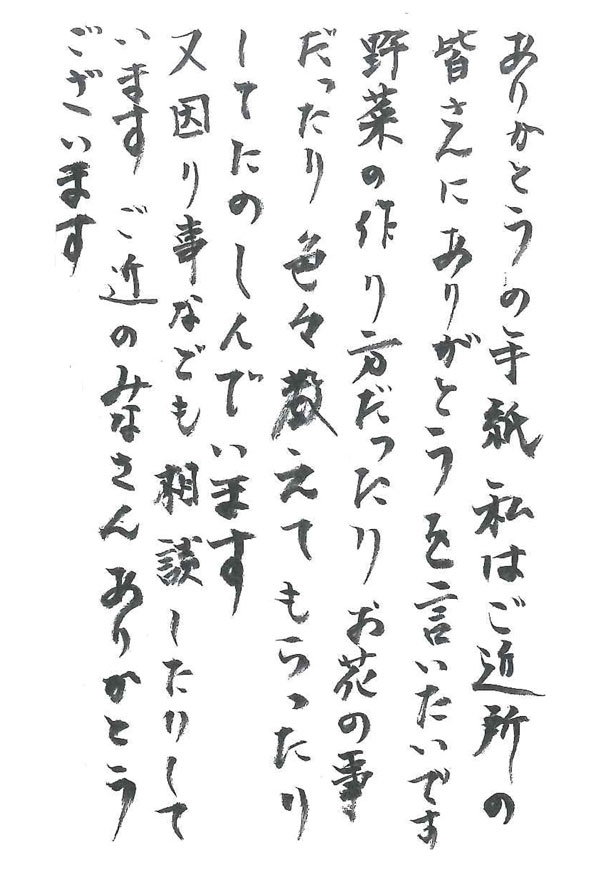 ありがとうの手紙 私はご近所の
皆さんにありがとうを言いたいです
野菜の作り方だったり お花の事
だったり 色々教えてもらったり
してたのしんでいます
又因り事なども相談したりして
います ご近のみなさんありがとう
ございます